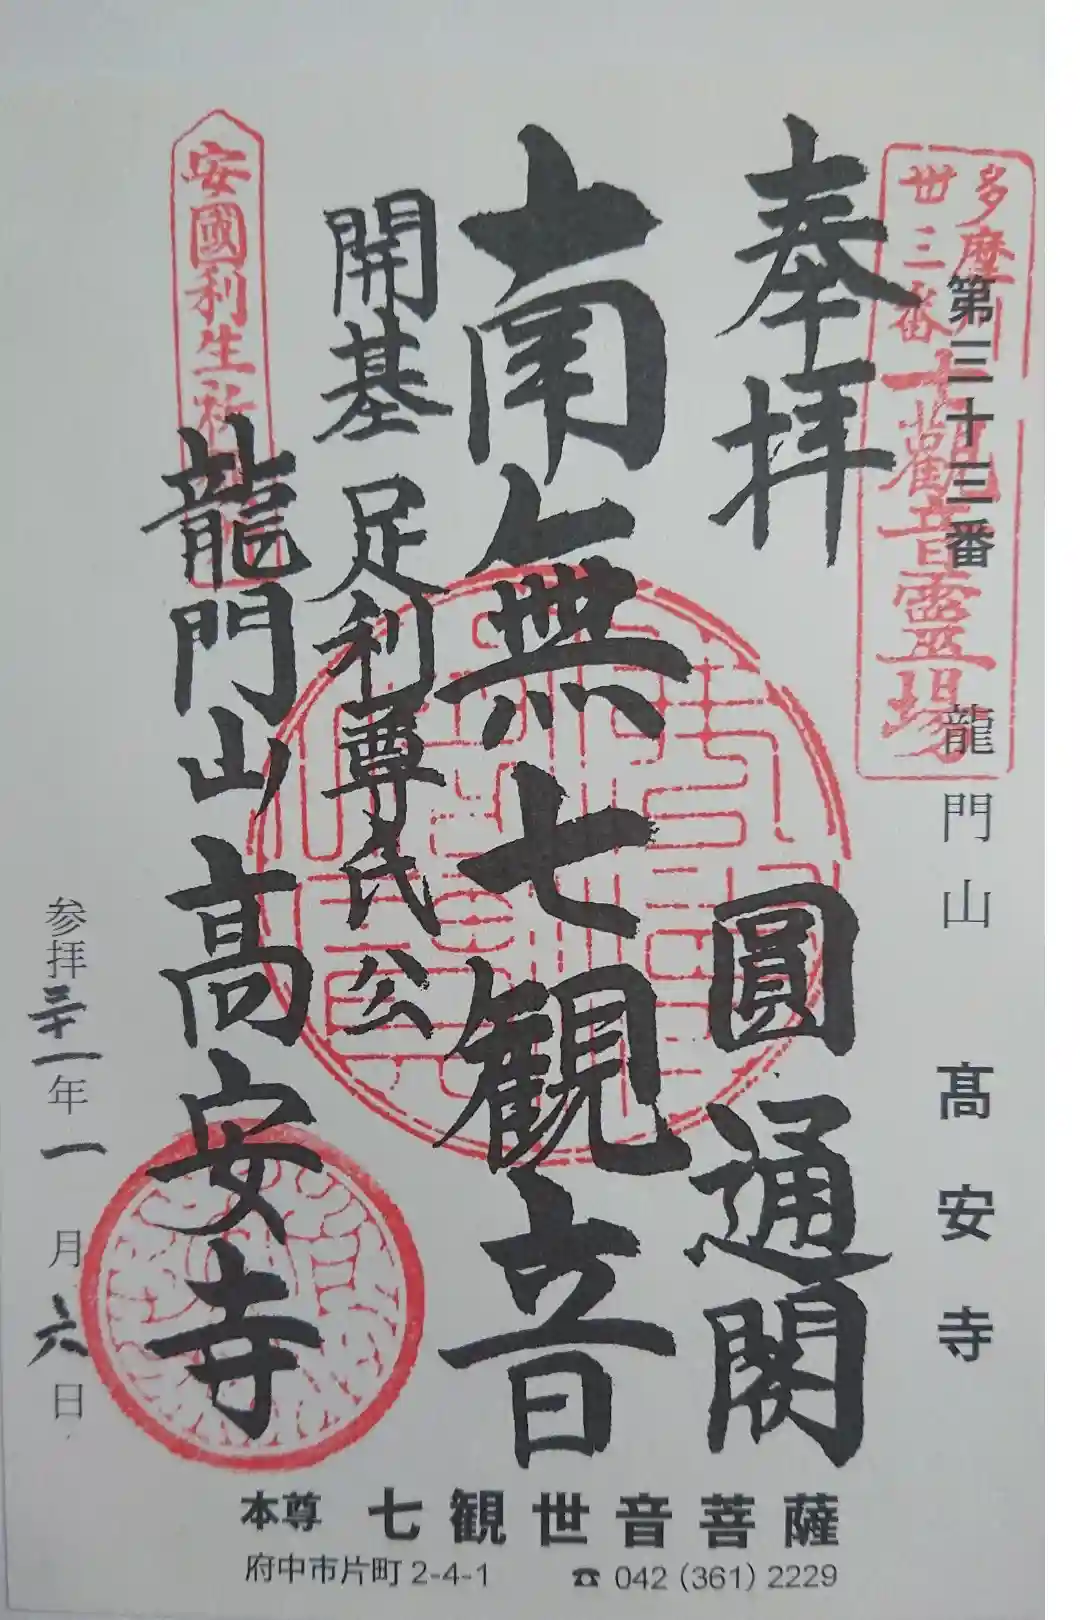 第三十三番 龍門山 髙安寺
多摩川
卅三番
観音霊場
奉拝 圓通閣
南無七観音
開基 足利尊氏公
安國利生
龍門山高安寺
参拝三十一年一月六日
本尊 七観世音菩薩
府中市片町2-4-1 ☎ 042 (361) 2229